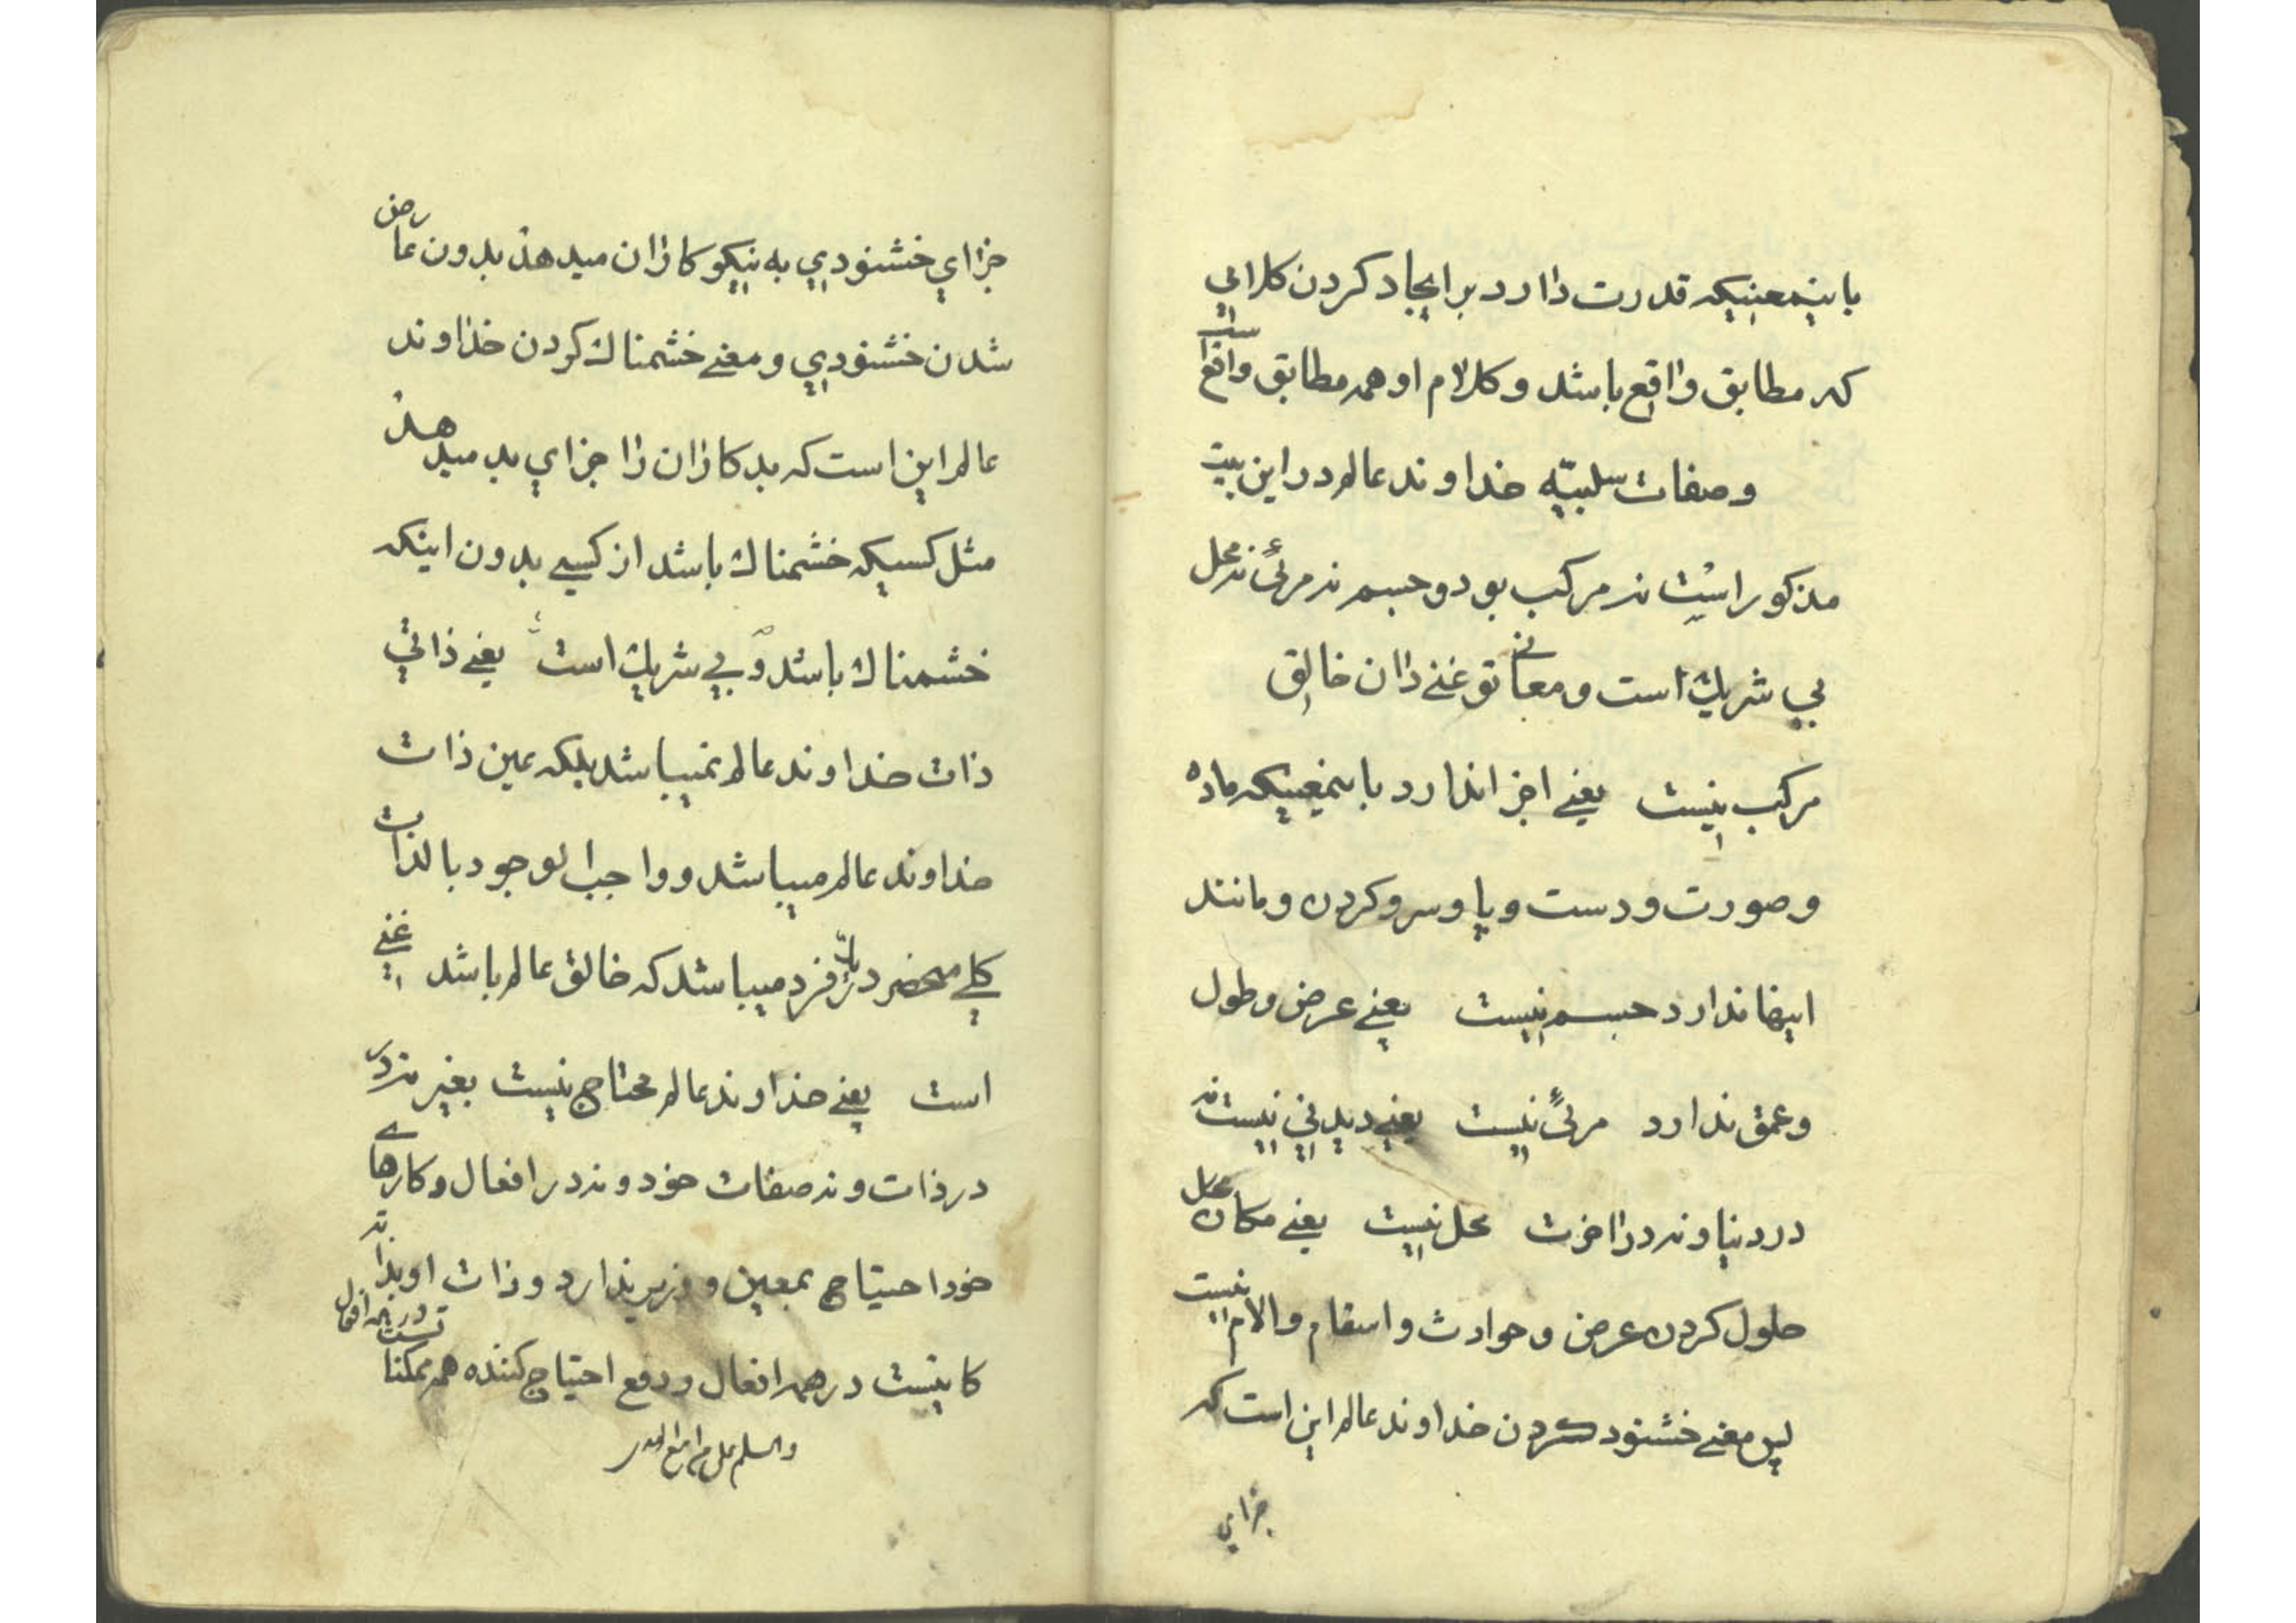 باینمعنیکه قدرت دارد بر ایجاد کردن کلامی
که مطابق واقع باشد و کلام او همه مطابق واقع است
وصفات سلبیّه خداوند عالم در این بیت
مذکور است نه مرکب بود و جسم نه مرئی نه محل
بی شریک است و معانی تو غنی دان خالق
مرکب نیست یعنی اجزا ندارد باینمعنیکه ماده
وصورت و دست و پا و سر و کردن و مانند
اینها ندارد جسم نیست یعنی عرض و طول
و عمق ندارد مرئی نیست یعنی دیدنی نیست نه
در دنیا و نه در اخرت محل نیست یعنی مکان محل
حلول کردن عرض و حوادث و اسقام و الام نیست
پس معنی خشنود کردن خداوند عالم این است که
جزای
جزای خشنودی به نیکو کاران میدهد بدون عارض
شدن خشنودی و معنی خشمناک کردن خداوند
عالم این است که بدکاران را جزای بد میدهد
مثل کسیکه خشمناک باشد از کسی بدون اینکه
خشمناک باشد و بی شریک است یعنی ذاتی
ذات خداوند عالم نمیباشد بلکه عین ذات
خداوند عالم میباشد و واجب الوجود بالذات
کلی منحصر در یک فرد میباشد که خالق عالم باشد غنی
است یعنی خداوند عالم محتاج نیست بغیر نه در
در ذات و نه صفات خود و نه در افعال و کارهای
خود احتیاج بمعین و وزیر ندارد و ذات او بذاته
کافیست در همه افعال و رفع احتیاج کننده همه ممکنات
در همه افعال
والسلم علی من اتبع الهدی